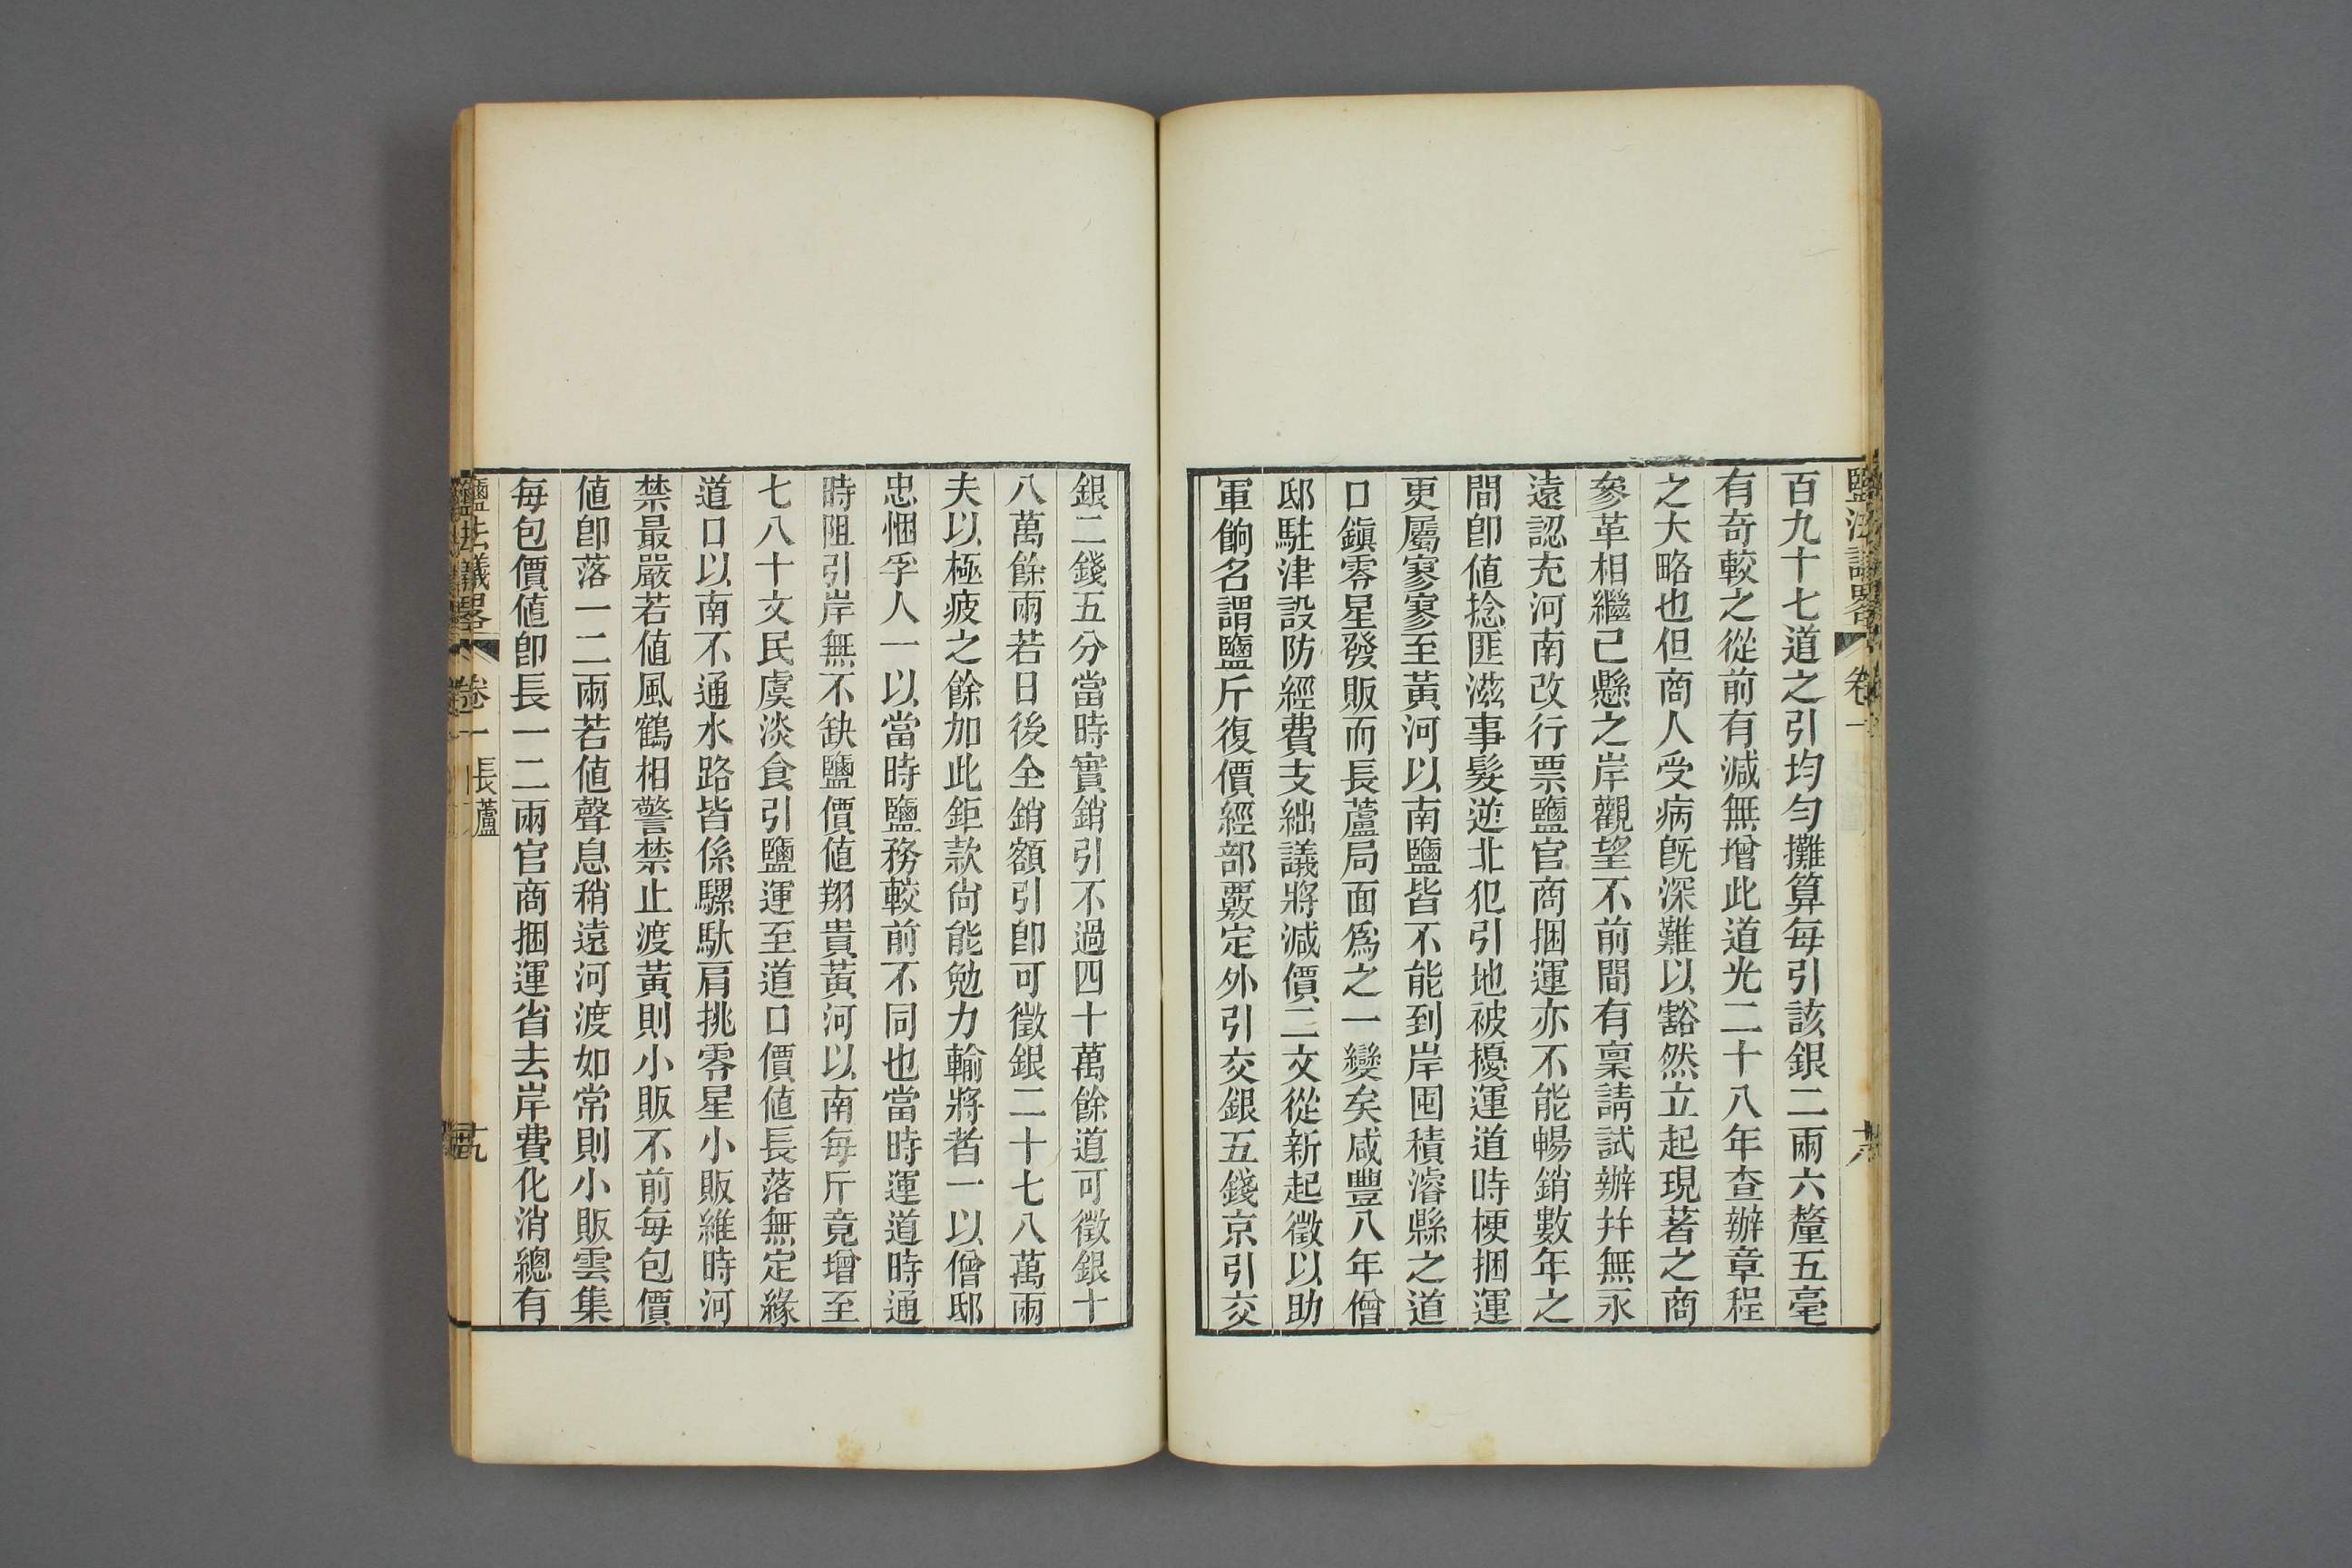 鹽法議畧 卷一
百九十七道之引均勻攤算每引該銀二兩六釐五毫
有奇較之從前有減無增此道光二十八年查辦章程
之大略也但商人受病旣深難以豁然立起現著之商
參革相繼已懸之岸觀望不前間有稟請試辦幷無永
遠認充河南改行票鹽官商捆運亦不能暢銷數年之
間卽値捻匪滋事髮逆北犯引地被擾運道時梗捆運
更屬寥寥至黃河以南鹽皆不能到岸囤積濬縣之道
口鎮零星發販而長蘆局面爲之一變矣咸豐八年僧
邸駐津設防經費支絀議將減價二文從新起徵以助
軍餉名謂鹽斤復價經部覈定外引交銀五錢京引交
銀二錢五分當時實銷引不過四十萬餘道可徵銀十
八萬餘兩若日後全銷額引卽可徵銀二十七八萬兩
夫以極疲之餘加此鉅款尙能勉力輸將者一以僧邸
忠悃孚人一以當時鹽務較前不同也當時運道時通
時阻引岸無不缺鹽價値翔貴黃河以南每斤竟增至
七八十文民虞淡食引鹽運至道口價値長落無定緣
道口以南不通水路皆係騾馱肩挑零星小販維時河
禁最嚴若値風鶴相警禁止渡黃則小販不前每包價
値卽落一二兩若値聲息稍遠河渡如常則小販雲集
每包價値卽長一二兩官商捆運省去岸費化消總有
鹽法議畧 卷一 長蘆 十九